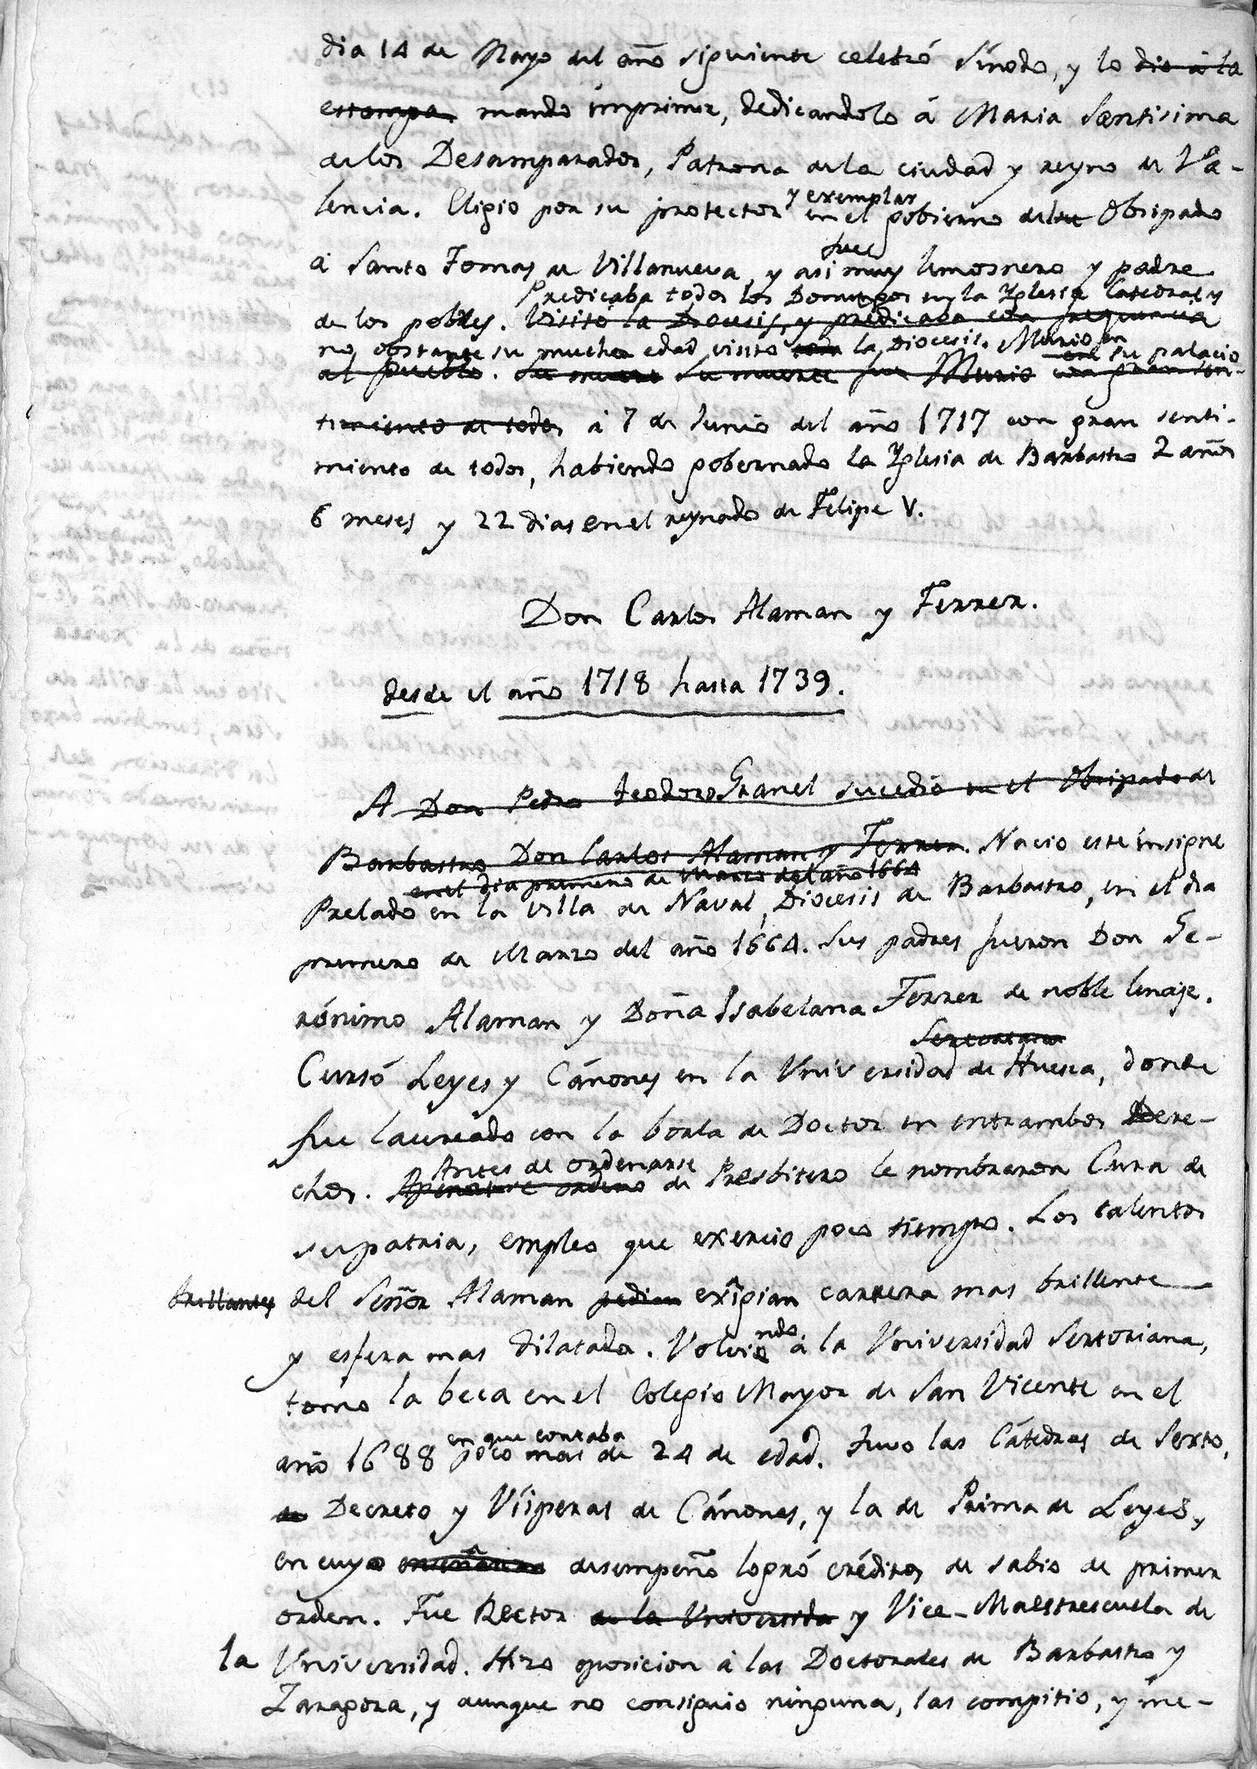 dia 14 de Mayo del año siguiente celebró Sínodo, y lo dio á la
estampa, mandó imprimir, dedicandolo á Maria Santisima
de los Desamparados, Patrona de la ciudad y reyno de Va-
lencia. Eligio por su protector y exemplar en el gobierno del Obispado
fue
á Santo Tomas de Villanueva, y asi muy limosnero y padre
Predicaba todos los Domingos en la Yglesia Catedral y
de los pobres. Visitó la Diocesis, y predicaba con frequencia
no obstante su mucha edad visitó toda la Diocesis. Murio en su palacio
al pueblo. Su muerte Su muerte fue Murio con gran sen-
timiento de todos á 7 de Junio del año 1717 con gran senti-
miento de todos, habiendo gobernado la Yglesia de Barbastro 2 años
6 meses y 22 dias en el reynado de Felipe V.
Don Carlos Alaman y Ferrer.
desde el año 1718 hasta 1739.
A Don Pedro Teodoro Granel sucedió en el Obispado de
Barbastro Don Carlos Alaman y Ferrer. Nacio este insigne
en el dia primero de Marzo del año 1664
Prelado en la villa de Naval, Diocesis de Barbastro, en el dia
primero de Marzo del año 1664. Sus padres fueron Don Ge-
rónimo Alaman y Doña Isabelana Ferrer de noble linaje.
Sertoriana
Cursó Leyes y Cánones en la Universidad de Huesca, donde
fue laureado con la borla de Doctor en entrambos Dere-
chos. Antes de ordenarse de Presbitero le nombraron Cura de
su patria, empleo que exercio poco tiempo. Los talentos
brillantes del Señor Alaman pedian exîgian carrera mas brillente
y esfera mas dilatada. Volviendo á la Universidad Sertoriana,
tomo la beca en el Colegio Mayor de San Vicente en el
año 1688 en que contaba poco mas de 24 de edad. Tuvo las Cátedras de Sexto,
de Decreto y Vísperas de Cánones, y la de Prima de Leyes,
en cuyo enseñanza desempeño logró créditos de sabio de primer
orden. Fue Rector de la Universida y Vice-Maestrescuela de
la Universidad. Hizo oposicion á las Doctorales de Barbastro y
Zaragoza, y aunque no consiguio ninguna, las compitio, y me-